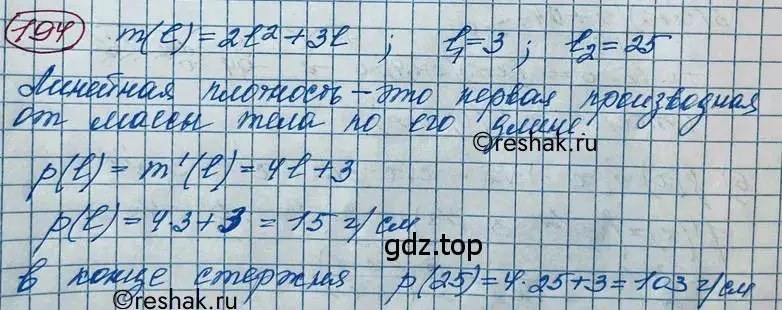 194 m(l) = 2l² + 3l ; l₁ = 3 ; l₂ = 25
Линейная плотность – это первая производная
от массы тела по его длине.
©reshak.ru
p(l) = m'(l) = 4l + 3
p(l) = 4·3 + 3 = 15 г/см
gdz.top
в конце стержня p(25) = 4·25 + 3 = 103 г/см
©reshak.ru